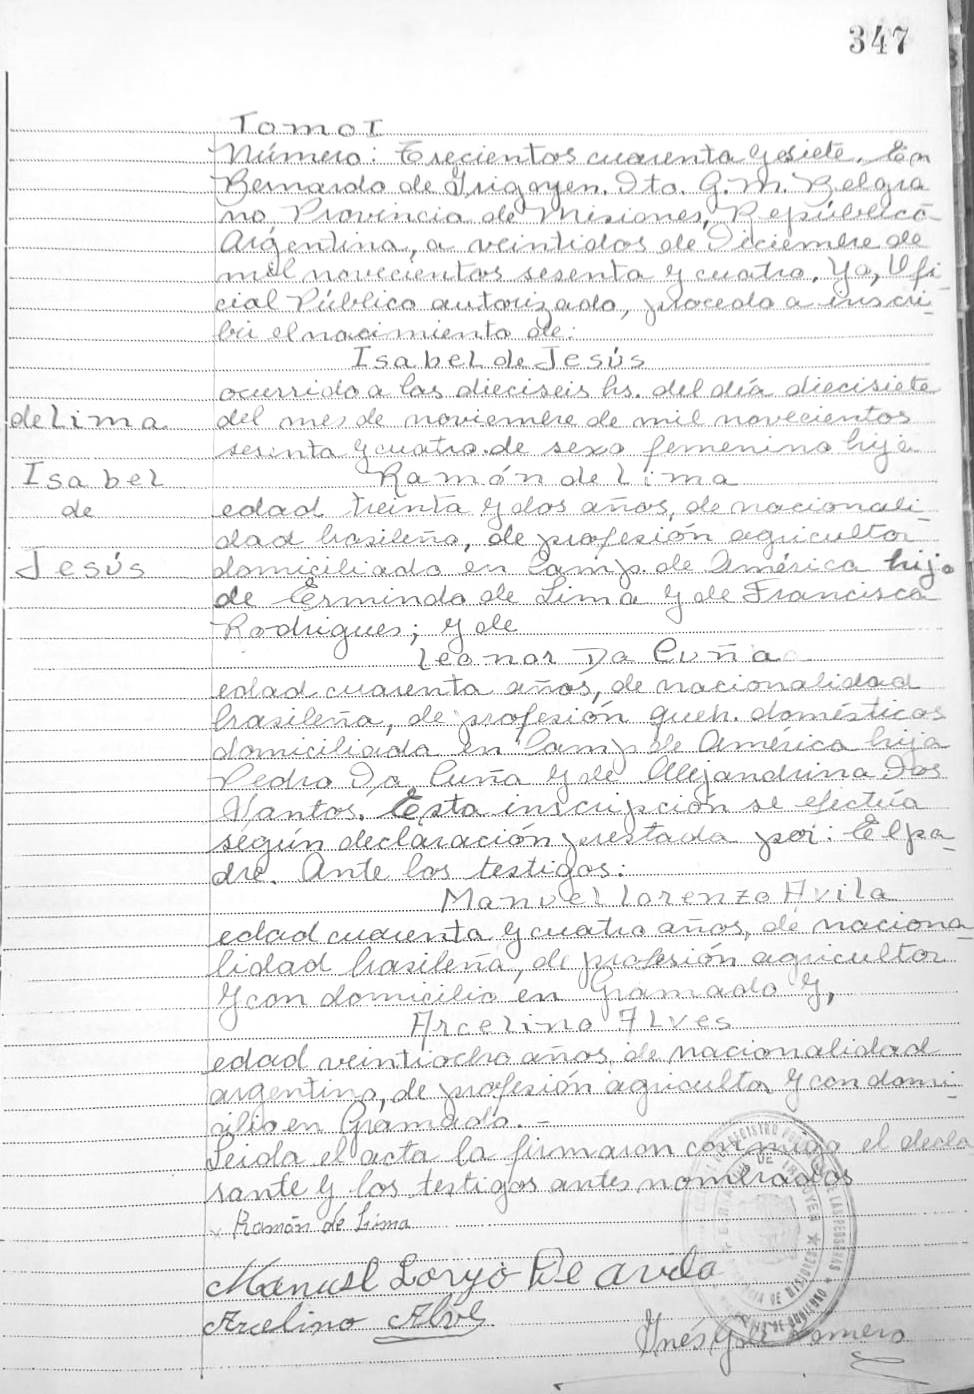 347
Tomo I
Número: Trecientos cuarenta y siete. En
Bernardo de Irigoyen. Dto. G. M. Belgra
no Provincia de Misiones, República
Argentina, a veintidos de Diciembre de
mil novecientos sesenta y cuatro. Yo, Ofi
cial Público autorizado, procedo a inscri-
bir el nacimiento de:
Isabel de Jesús
ocurrido a las dieciseis hs. del día diecisiete
de Lima
del mes de noviembre de mil novecientos
sesenta y cuatro. de sexo femenino hija
Isabel
Ramón de Lima
de
edad treinta y dos años, de nacionali-
dad brasileña, de profesión agricultor
Jesús
domiciliado en Camp. de América hijo
de Ermindo de Lima y de Francisca
Rodrigues; y de
Leonor Da Cuña
edad cuarenta años, de nacionalidad
brasileña, de profesión queh. domésticos
domiciliada en Camp de América hija
Pedro Da Cuña y de Alejandrina Dos
Santos. Esta inscripción se efectúa
según declaración prestada por: El pa-
dre. Ante los testigos:
Manuel Lorenzo Avila
edad cuarenta y cuatro años, de naciona
lidad brasileña, de profesión agricultor
y con domicilio en Gramado y,
Arcelino Alves
edad veintiocho años de nacionalidad
argentino, de profesión agricultor y con domi-
cilio en Gramado. -
Leida el acta la firmaron conmigo el decla
rante y los testigos antes nombrados
x Ramón de Lima
Manuel De Avila
Arcelino Alves
Inés G. de Romero